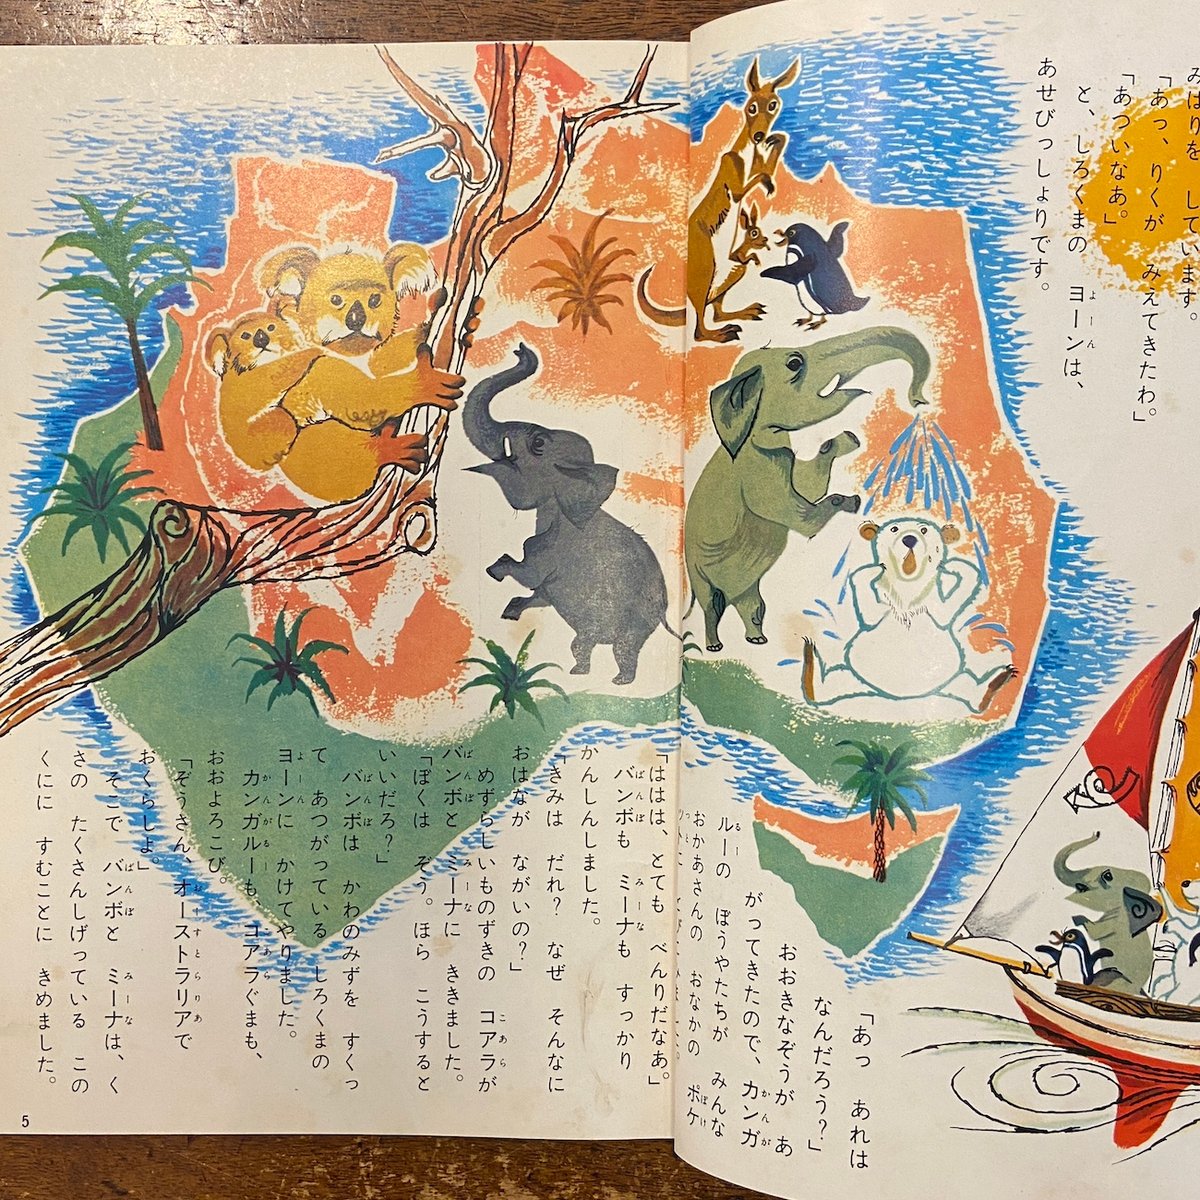 みはりを　しています。
「あっ、りくが　みえてきたわ。」
「あついなあ。」
と、しろくまの　ヨーンは、
あせびっしょりです。
「あっ　あれは
なんだろう？」
おおきなぞうが　あ
がってきたので、カンガ
ルーの　ぼうやたちが　みんな
おかあさんの　おなかの　ポケ
「ははは、とても　べんりだなあ。」
バンボも　ミーナも　すっかり
かんしんしました。
「きみは　だれ？　なぜ　そんなに
おはなが　ながいの？」
めずらしいものずきの　コアラが
バンボと　ミーナに　ききました。
「ぼくは　ぞう。ほら　こうすると
いいだろ？」
バンボは　かわのみずを　すくっ
て　あつがっている　しろくまの
ヨーンに　かけてやりました。
カンガルーも、コアラぐまも、
おおよろこび。
「ぞうさん、オーストラリアで
おくらしよ。」
そこで　バンボと　ミーナは、く
さの　たくさんしげっている　この
くにに　すむことに　きめました。
5